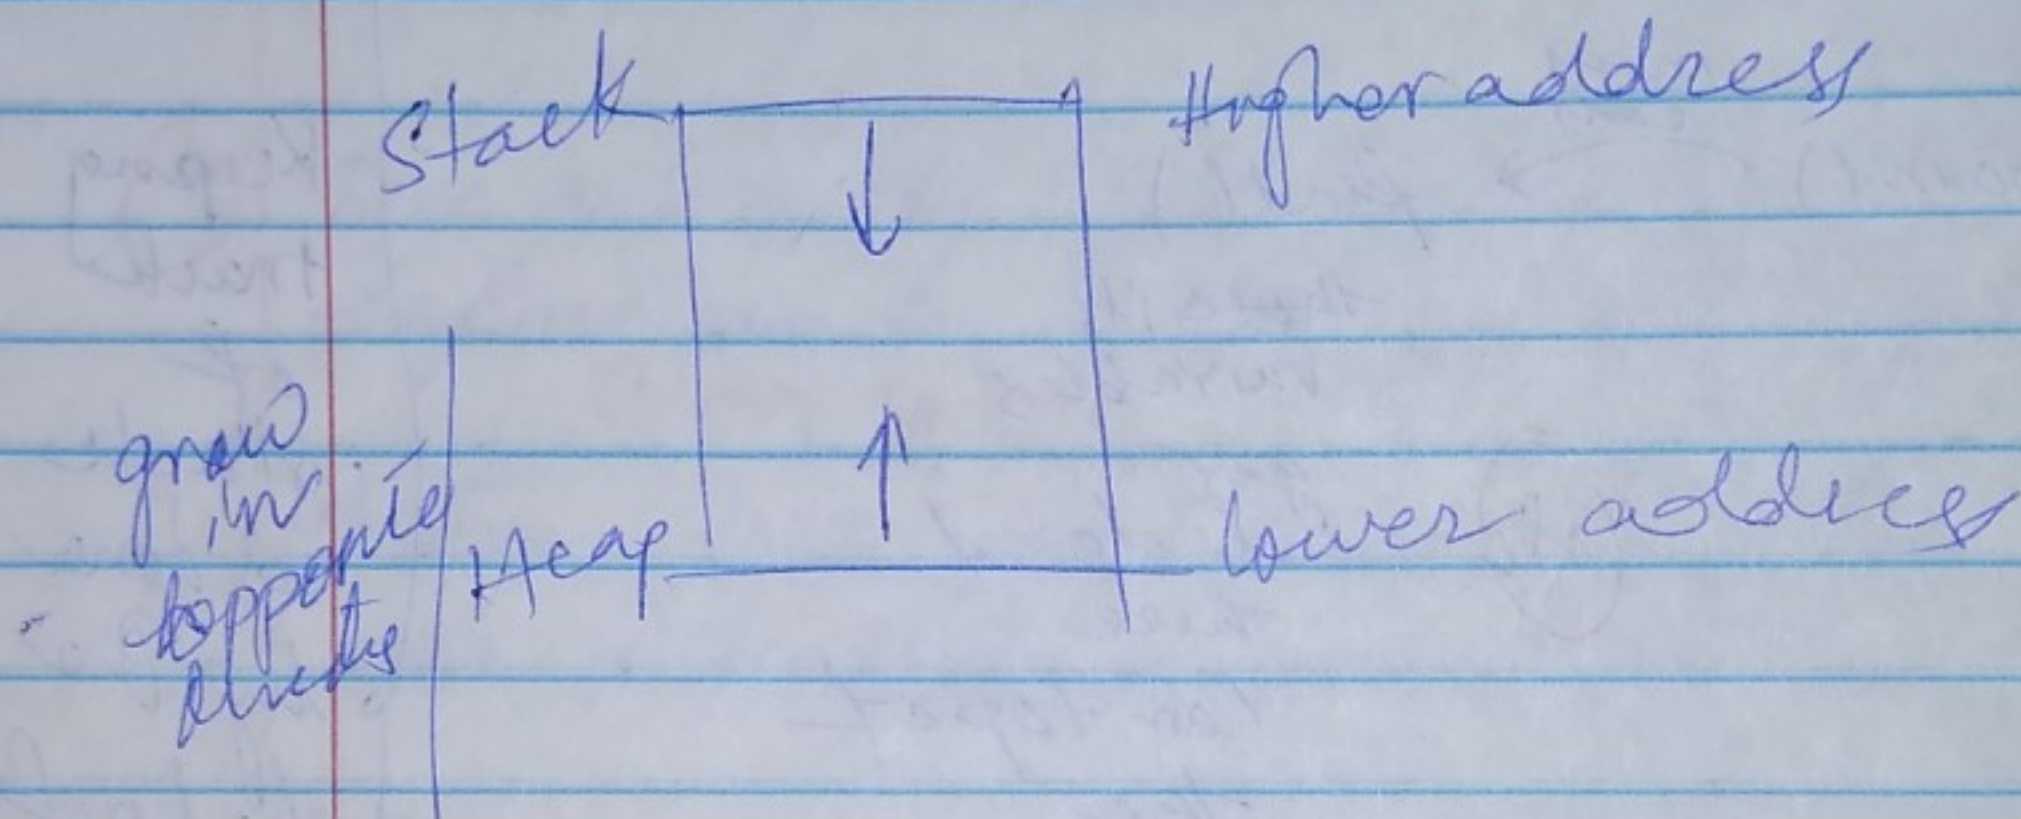 Stack
Higher address
grow
in
opposite
directs
Heap
lower address